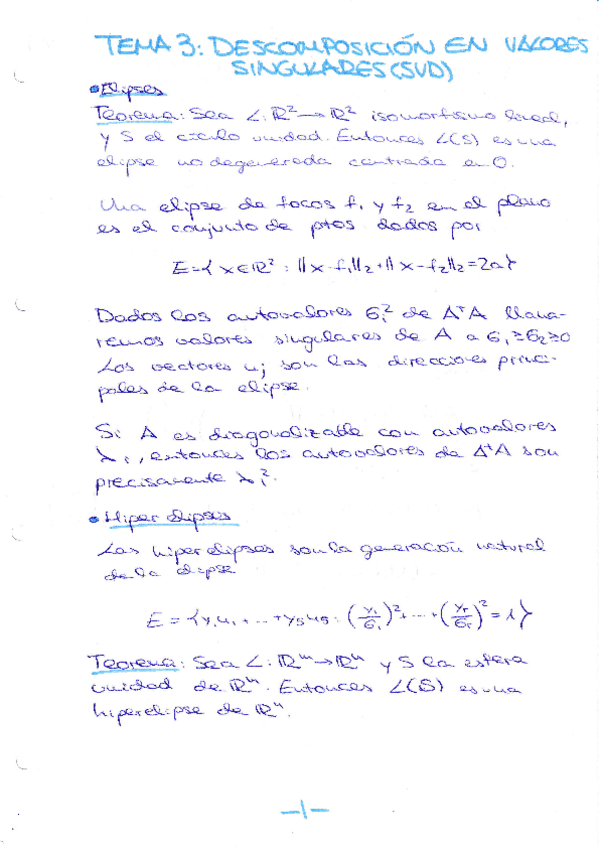 TEMA 3: DESCOMPOSICIÓN EN VALORES
SINGULARES (SVD)
• Elipses
Teorema: Sea L: ℝ² → ℝ² isomorfismo lineal,
y S el círculo unidad. Entonces L(S) es una
elipse no degenerada centrada en 0.
Una elipse de focos f₁ y f₂ en el plano
es el conjunto de ptos dados por
E = { x ∈ ℝ² : ||x - f₁||₂ + ||x - f₂||₂ = 2a }
Dados los autovalores σᵢ² de AᵗA llama-
remos valores singulares de A a σ₁ ≥ σ₂ ≥ 0
Los vectores uⱼ son las direcciones princi-
pales de la elipse.
Si A es diagonalizable con autovalores
λᵢ, entonces los autovalores de AᵗA son
precisamente λᵢ².
• Hiperelipses
Las hiperelipses son la generación natural
de la elipse
E = { y₁u₁ + ... + y₅u₅ : (y₁/σ₁)² + ... + (yᵣ/σᵣ)² = 1 }
Teorema: Sea L: ℝᵐ → ℝⁿ y S la esfera
unidad de ℝⁿ. Entonces L(S) es una
hiperelipse de ℝⁿ.
-1-